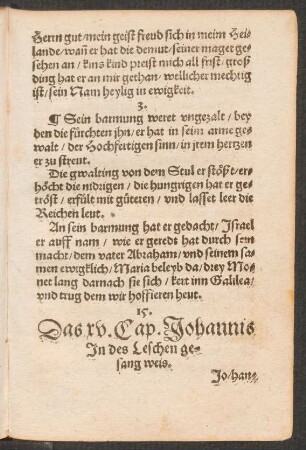 Herrn gut / mein geist freud sich in meim Hei-
lande / wañ er hat die demut / seiner maget ge-
sehen an / kins kind preist mich all frist / groß
ding hat er an mir gethan / wellicher mechtig
ist / sein Nam heylig in ewigkeit.
3.
¶ Sein barmung weret vngezalt / bey
den die fürchten jhn / er hat in seim arme ge-
walt / der Hochfertigen sinn / in jrem hertzen
er zu streut.
Die gwalting von dem Stul er stößt / er-
höcht die nidrigen / die hungrigen hat er ge-
tröst / erfült mit güteren / und lasset leer die
Reichen leut.
An sein barmung hat er gedacht / Israel
er auff nam / wie er geredt hat durch sein
macht / dem vater Abraham / vnd seinem sa-
men ewigklich / Maria beleyb da / drey Mo-
net lang darnach sie sich / kert inn Galilea /
vnd trug dem wir hoffieren heut.
15.
Das xv. Cap. Johannis
In des Leschen ge-
sang weis.
Johan-